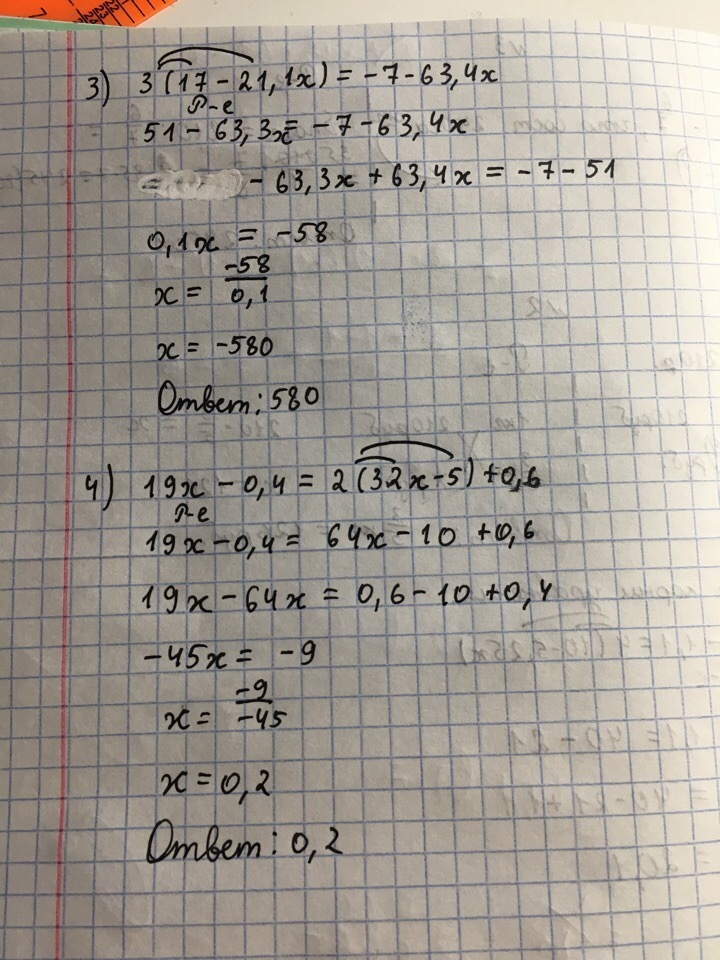 3) 3(17-21,1x) = -7-63,4x
Р-е
51 - 63,3x = -7-63,4x
- 63,3x + 63,4x = -7-51
0,1x = -58
x = -58/0,1
x = -580
Ответ: 580
4) 19x - 0,4 = 2(32x-5)+0,6
Р-е
19x-0,4 = 64x-10 +0,6
19x-64x = 0,6-10+0,4
-45x = -9
x = -9/-45
x = 0,2
Ответ: 0,2